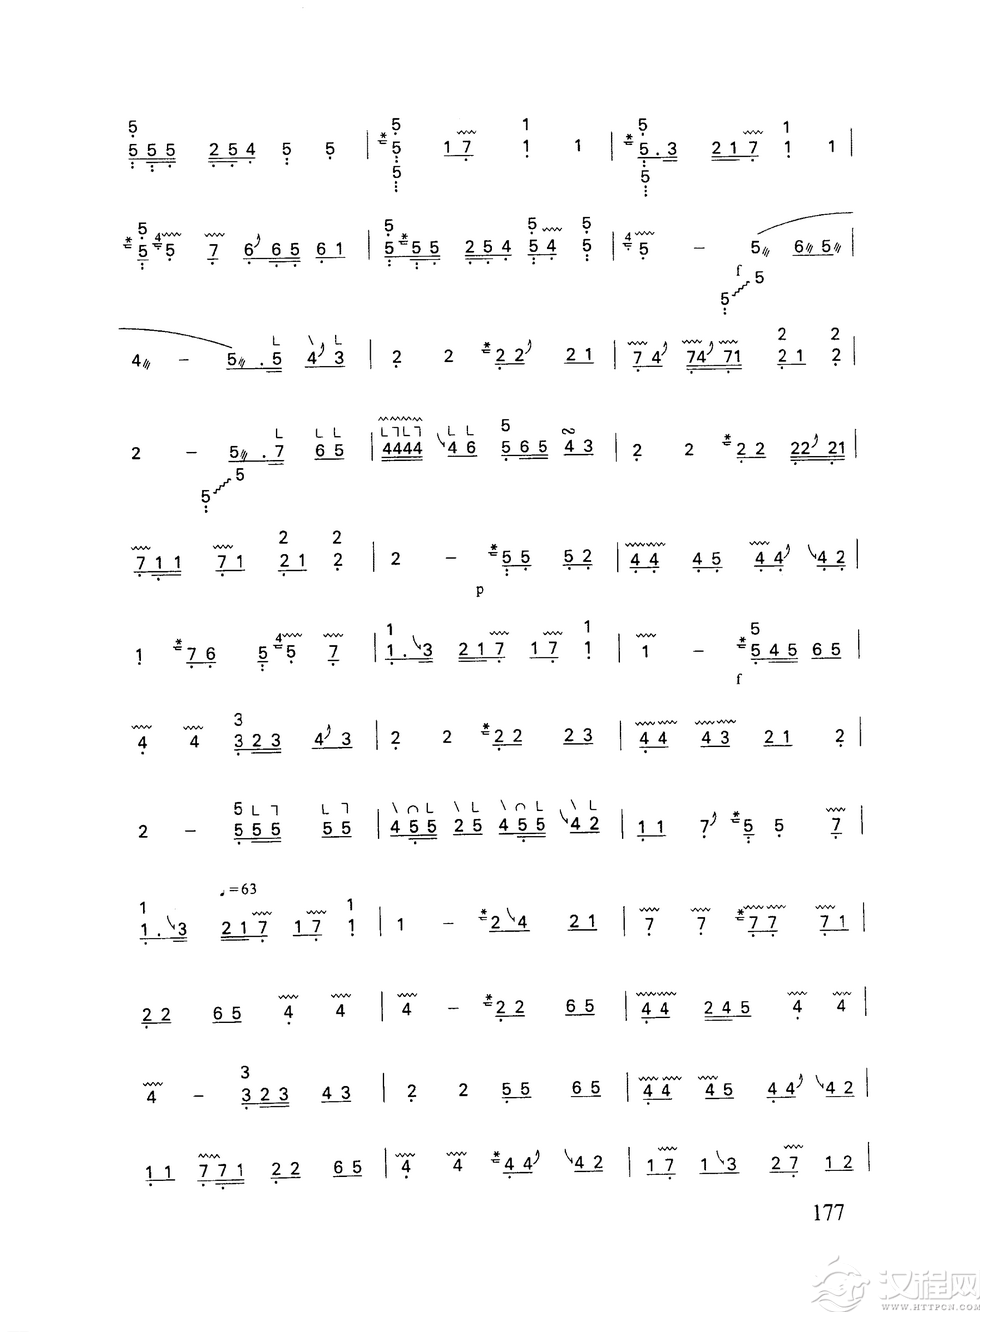 5 5 1 5 1
5 5 5 2 5 4 5 5 | 5 1 7 1 1 | 5 . 3 2 1 7 1 1 |
5 5
5 4 5 5 5
5 5 7 6 6 5 6 1 | 5 5 5 2 5 4 5 4 5 | 4 5 – 5 6 5 |
f 5
5
4 – 5 . 5 4 3 | 2 2 2 2 2 1 | 7 4 7 4 7 1 2 1 2 |
2 2
2 – 5 . 7 6 5 | 4 4 4 4 4 6 5 6 5 4 3 | 2 2 2 2 2 2 2 1 |
5
5 5
2 2
7 1 1 7 1 2 1 2 | 2 – 5 5 5 2 | 4 4 4 5 4 4 4 2 |
p
4 1 1 5
1 7 6 5 5 7 | 1 . 3 2 1 7 1 7 1 | 1 – 5 4 5 6 5 |
f
3
4 4 3 2 3 4 3 | 2 2 2 2 2 3 | 4 4 4 3 2 1 2 |
5
2 – 5 5 5 5 5 | 4 5 5 2 5 4 5 5 4 2 | 1 1 7 5 5 7 |
♩=63
1 1
1 . 3 2 1 7 1 7 1 | 1 – 2 4 2 1 | 7 7 7 7 7 1 |
2 2 6 5 4 4 | 4 – 2 2 6 5 | 4 4 2 4 5 4 4 |
3
4 – 3 2 3 4 3 | 2 2 5 5 6 5 | 4 4 4 5 4 4 4 2 |
1 1 7 7 1 2 2 6 5 | 4 4 4 4 4 2 | 1 7 1 3 2 7 1 2 |
177
汉程网
WWW.HTTPCN.COM